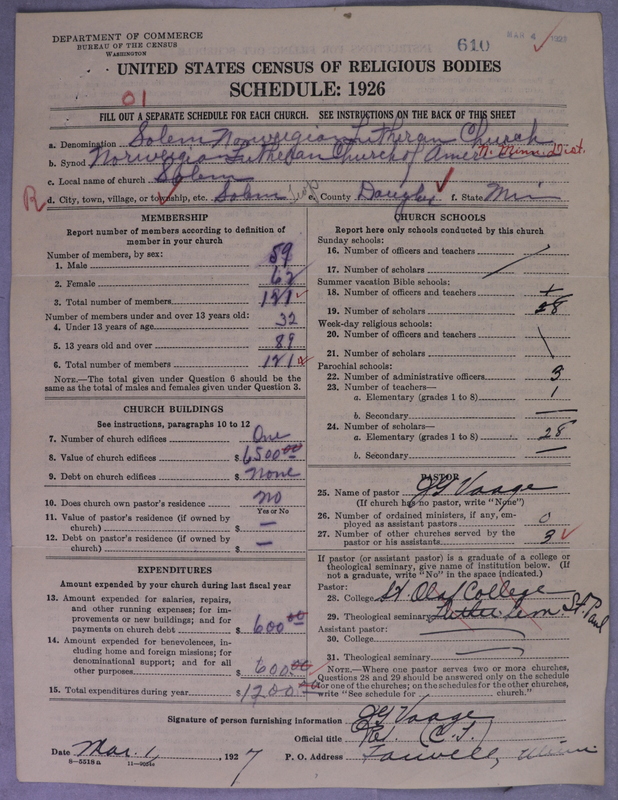 DEPARTMENT OF COMMERCE
BUREAU OF THE CENSUS
WASHINGTON
610
MAR 4
UNITED STATES CENSUS OF RELIGIOUS BODIES
SCHEDULE: 1926
01
FILL OUT A SEPARATE SCHEDULE FOR EACH CHURCH. SEE INSTRUCTIONS ON THE BACK OF THIS SHEET
a. Denomination Solem Norwegian Lutheran Church
b. Synod Norwegian Lutheran Church of Amer N. Minn. Dist.
c. Local name of church Solem
R d. City, town, village, or township, etc. Solem e. County Douglas f. State Min
MEMBERSHIP
Report number of members according to definition of member in your church
Number of members, by sex:
1. Male 59
2. Female 62
3. Total number of members 121
Number of members under and over 13 years old:
4. Under 13 years of age 32
5. 13 years old and over 89
6. Total number of members 121
NOTE.—The total given under Question 6 should be the same as the total of males and females given under Question 3.
CHURCH BUILDINGS
See instructions, paragraphs 10 to 12
7. Number of church edifices One
8. Value of church edifices $ 6500.00
9. Debt on church edifices $ None
10. Does church own pastor's residence No
Yes or No
11. Value of pastor's residence (if owned by church) $ —
12. Debt on pastor's residence (if owned by church) $ —
EXPENDITURES
Amount expended by your church during last fiscal year
13. Amount expended for salaries, repairs, and other running expenses; for improvements or new buildings; and for payments on church debt $ 600.00
14. Amount expended for benevolences, including home and foreign missions; for denominational support; and for all other purposes $ 600.00
15. Total expenditures during year $ 1200.00
CHURCH SCHOOLS
Report here only schools conducted by this church
Sunday schools:
16. Number of officers and teachers
17. Number of scholars
Summer vacation Bible schools:
18. Number of officers and teachers 1
19. Number of scholars 28
Week-day religious schools:
20. Number of officers and teachers
21. Number of scholars
Parochial schools:
22. Number of administrative officers 3
23. Number of teachers—
a. Elementary (grades 1 to 8) 1
b. Secondary —
24. Number of scholars—
a. Elementary (grades 1 to 8) 28
b. Secondary —
PASTOR
25. Name of pastor JG Vaage
(If church has no pastor, write "None")
26. Number of ordained ministers, if any, employed as assistant pastors 0
27. Number of other churches served by the pastor or his assistants 3
If pastor (or assistant pastor) is a graduate of a college or theological seminary, give name of institution below. (If not a graduate, write "No" in the space indicated.)
Pastor:
28. College St. Olaf College
29. Theological seminary Luther Sem. St. Paul
Assistant pastor:
30. College
31. Theological seminary
NOTE.—Where one pastor serves two or more churches, Questions 28 and 29 should be answered only on the schedule for one of the churches; on the schedules for the other churches, write "See schedule for church."
Signature of person furnishing information JG Vaage
Official title
Date Mar. 1, 1927 P. O. Address Farwell, Minn
8—5518a 11—